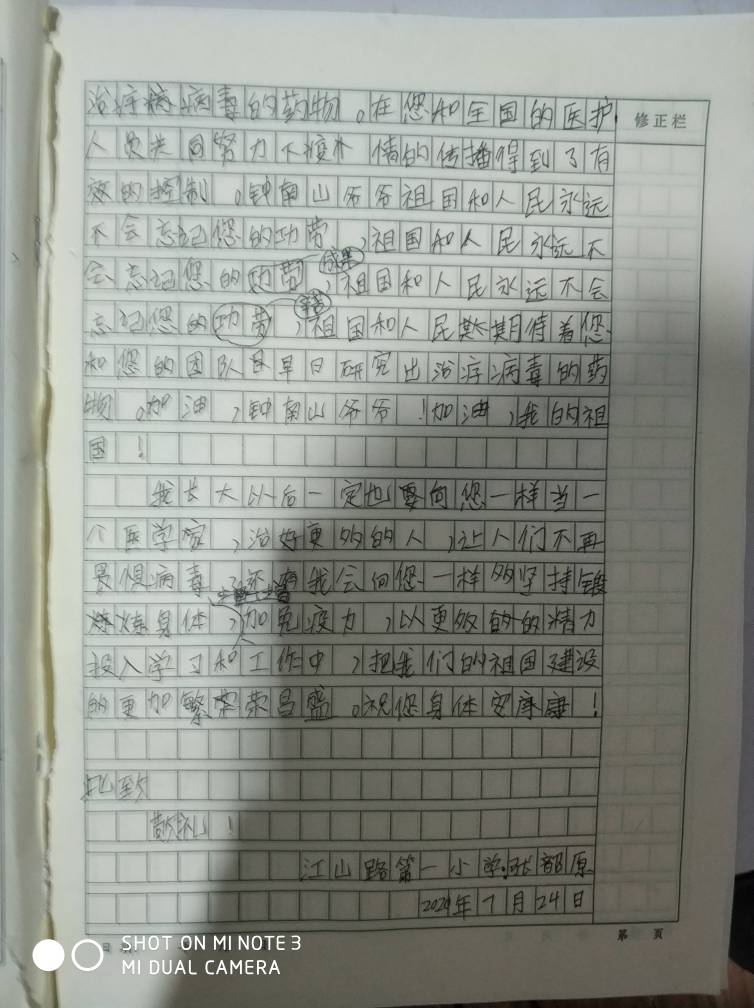 治疗病毒的药物。在您和全国的医护
修正栏
人员共同努力下疫 情的传播得到了有
效的控制。钟南山爷爷祖国和人民永远
不会忘记您的功劳,祖国和人民永远不
成果
会忘记您的功劳,祖国和人民永远不会
忘记您的功劳,祖国和人民期待着您
和您的团队早日研究出治疗病毒的药
物。加油,钟南山爷爷!加油,我的祖
国!
我长大以后一定也要向您一样当一
个医学家,治好更多的人,让人们不再
畏惧病毒,还有我会向您一样多坚持锻
炼身体,加免疫力,以更的精力
投入学习和工作中,把我们的祖国建设
的更加繁荣昌盛。祝您身体安康!
此致
敬礼!
江山路第一小学 张部原
2020年7月24日
第 页
SHOT ON MI NOTE 3
MI DUAL CAMERA